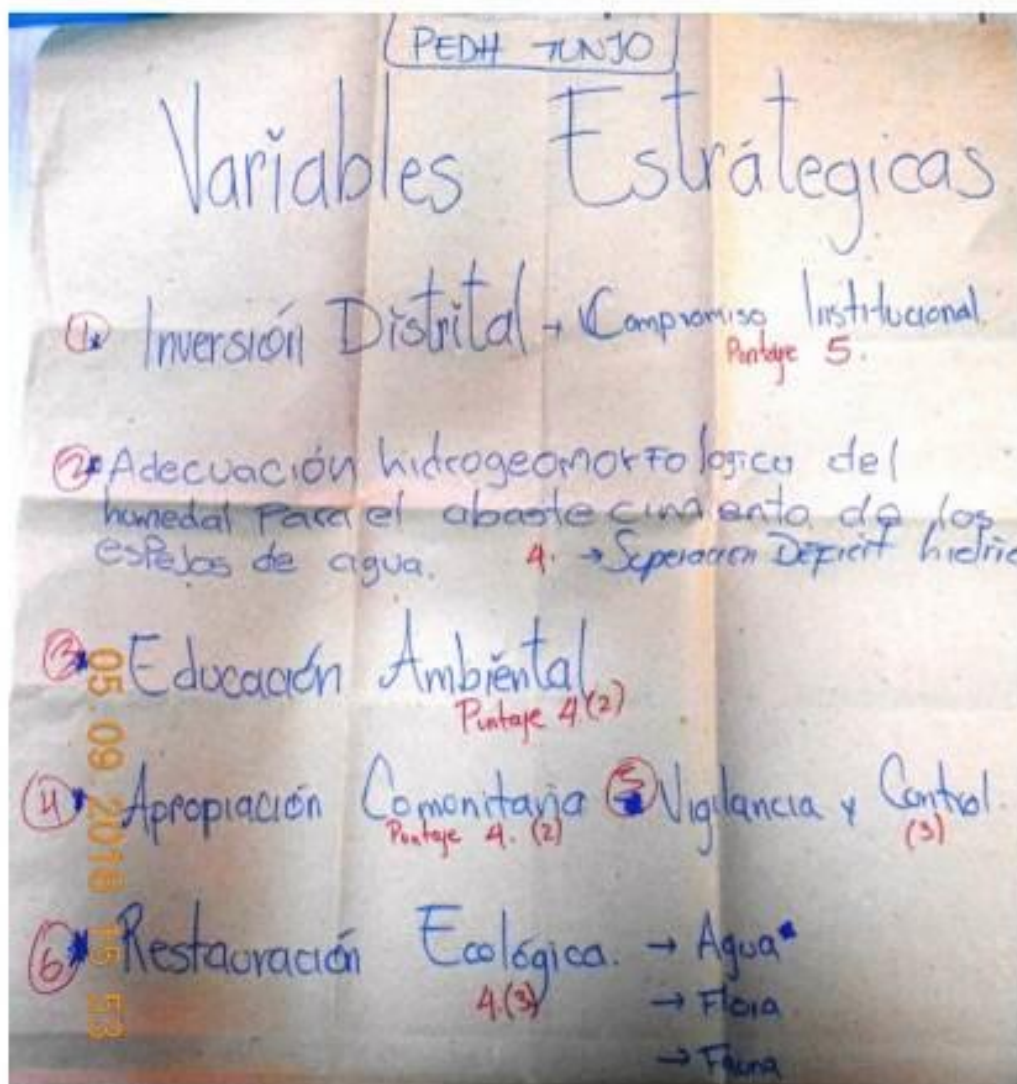 PEDH TUNJO
Variables Estrátegicas
1* Inversión Distrital → Compromiso Institucional.
Puntaje 5.
2* Adecuación hidrogeomorfologica del
humedal para el abastecimiento de los
espejos de agua. 4. → Superacion Deficit hidric
3* Educación Ambiental
Puntaje 4.(2)
4* Apropiación Comunitaria 5* Vigilancia y Control
Puntaje 4. (2) (3)
6* Restauración Ecológica. → Agua*
4.(3) → Flora
→ Fauna
05.09.2016 15 53